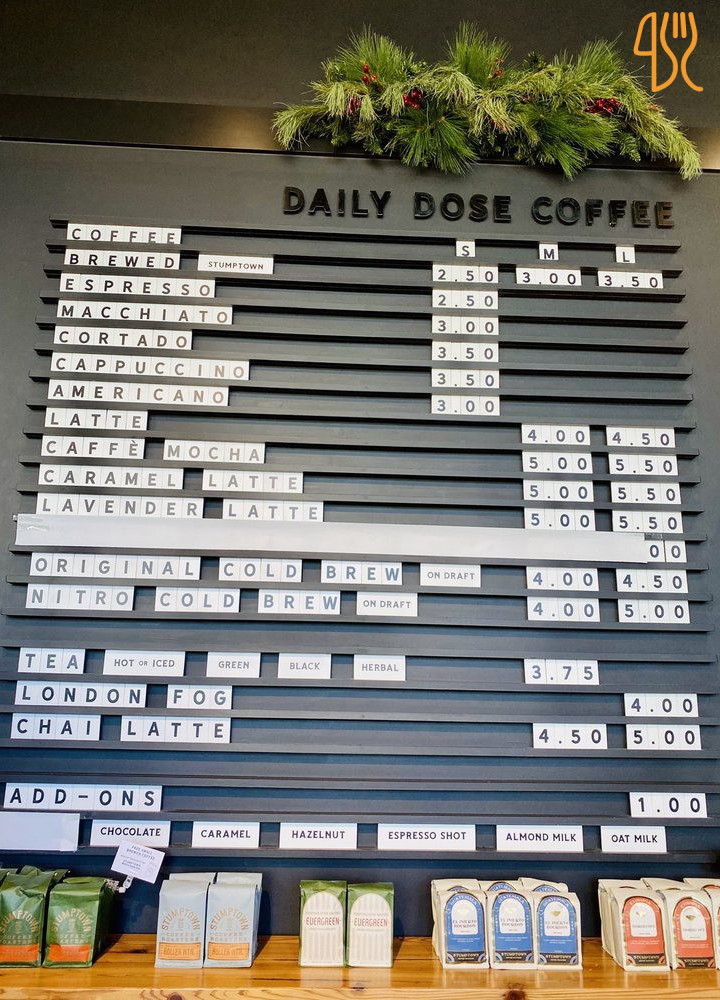 DAILY DOSE COFFEE
COFFEE S M L
BREWED STUMPTOWN 2.50 3.00 3.50
ESPRESSO 2.50
MACCHIATO 3.00
CORTADO 3.50
CAPPUCCINO 3.50
AMERICANO 3.00
LATTE 4.00 4.50
CAFFÈ MOCHA 5.00 5.50
CARAMEL LATTE 5.00 5.50
LAVENDER LATTE 5.00 5.50
00
ORIGINAL COLD BREW ON DRAFT 4.00 4.50
NITRO COLD BREW ON DRAFT 4.00 5.00
TEA HOT OR ICED GREEN BLACK HERBAL 3.75
LONDON FOG 4.00
CHAI LATTE 4.50 5.00
ADD-ONS 1.00
CHOCOLATE CARAMEL HAZELNUT ESPRESSO SHOT ALMOND MILK OAT MILK
STUMPTOWN STUMPTOWN STUMPTOWN STUMPTOWN EVERGREEN EVERGREEN